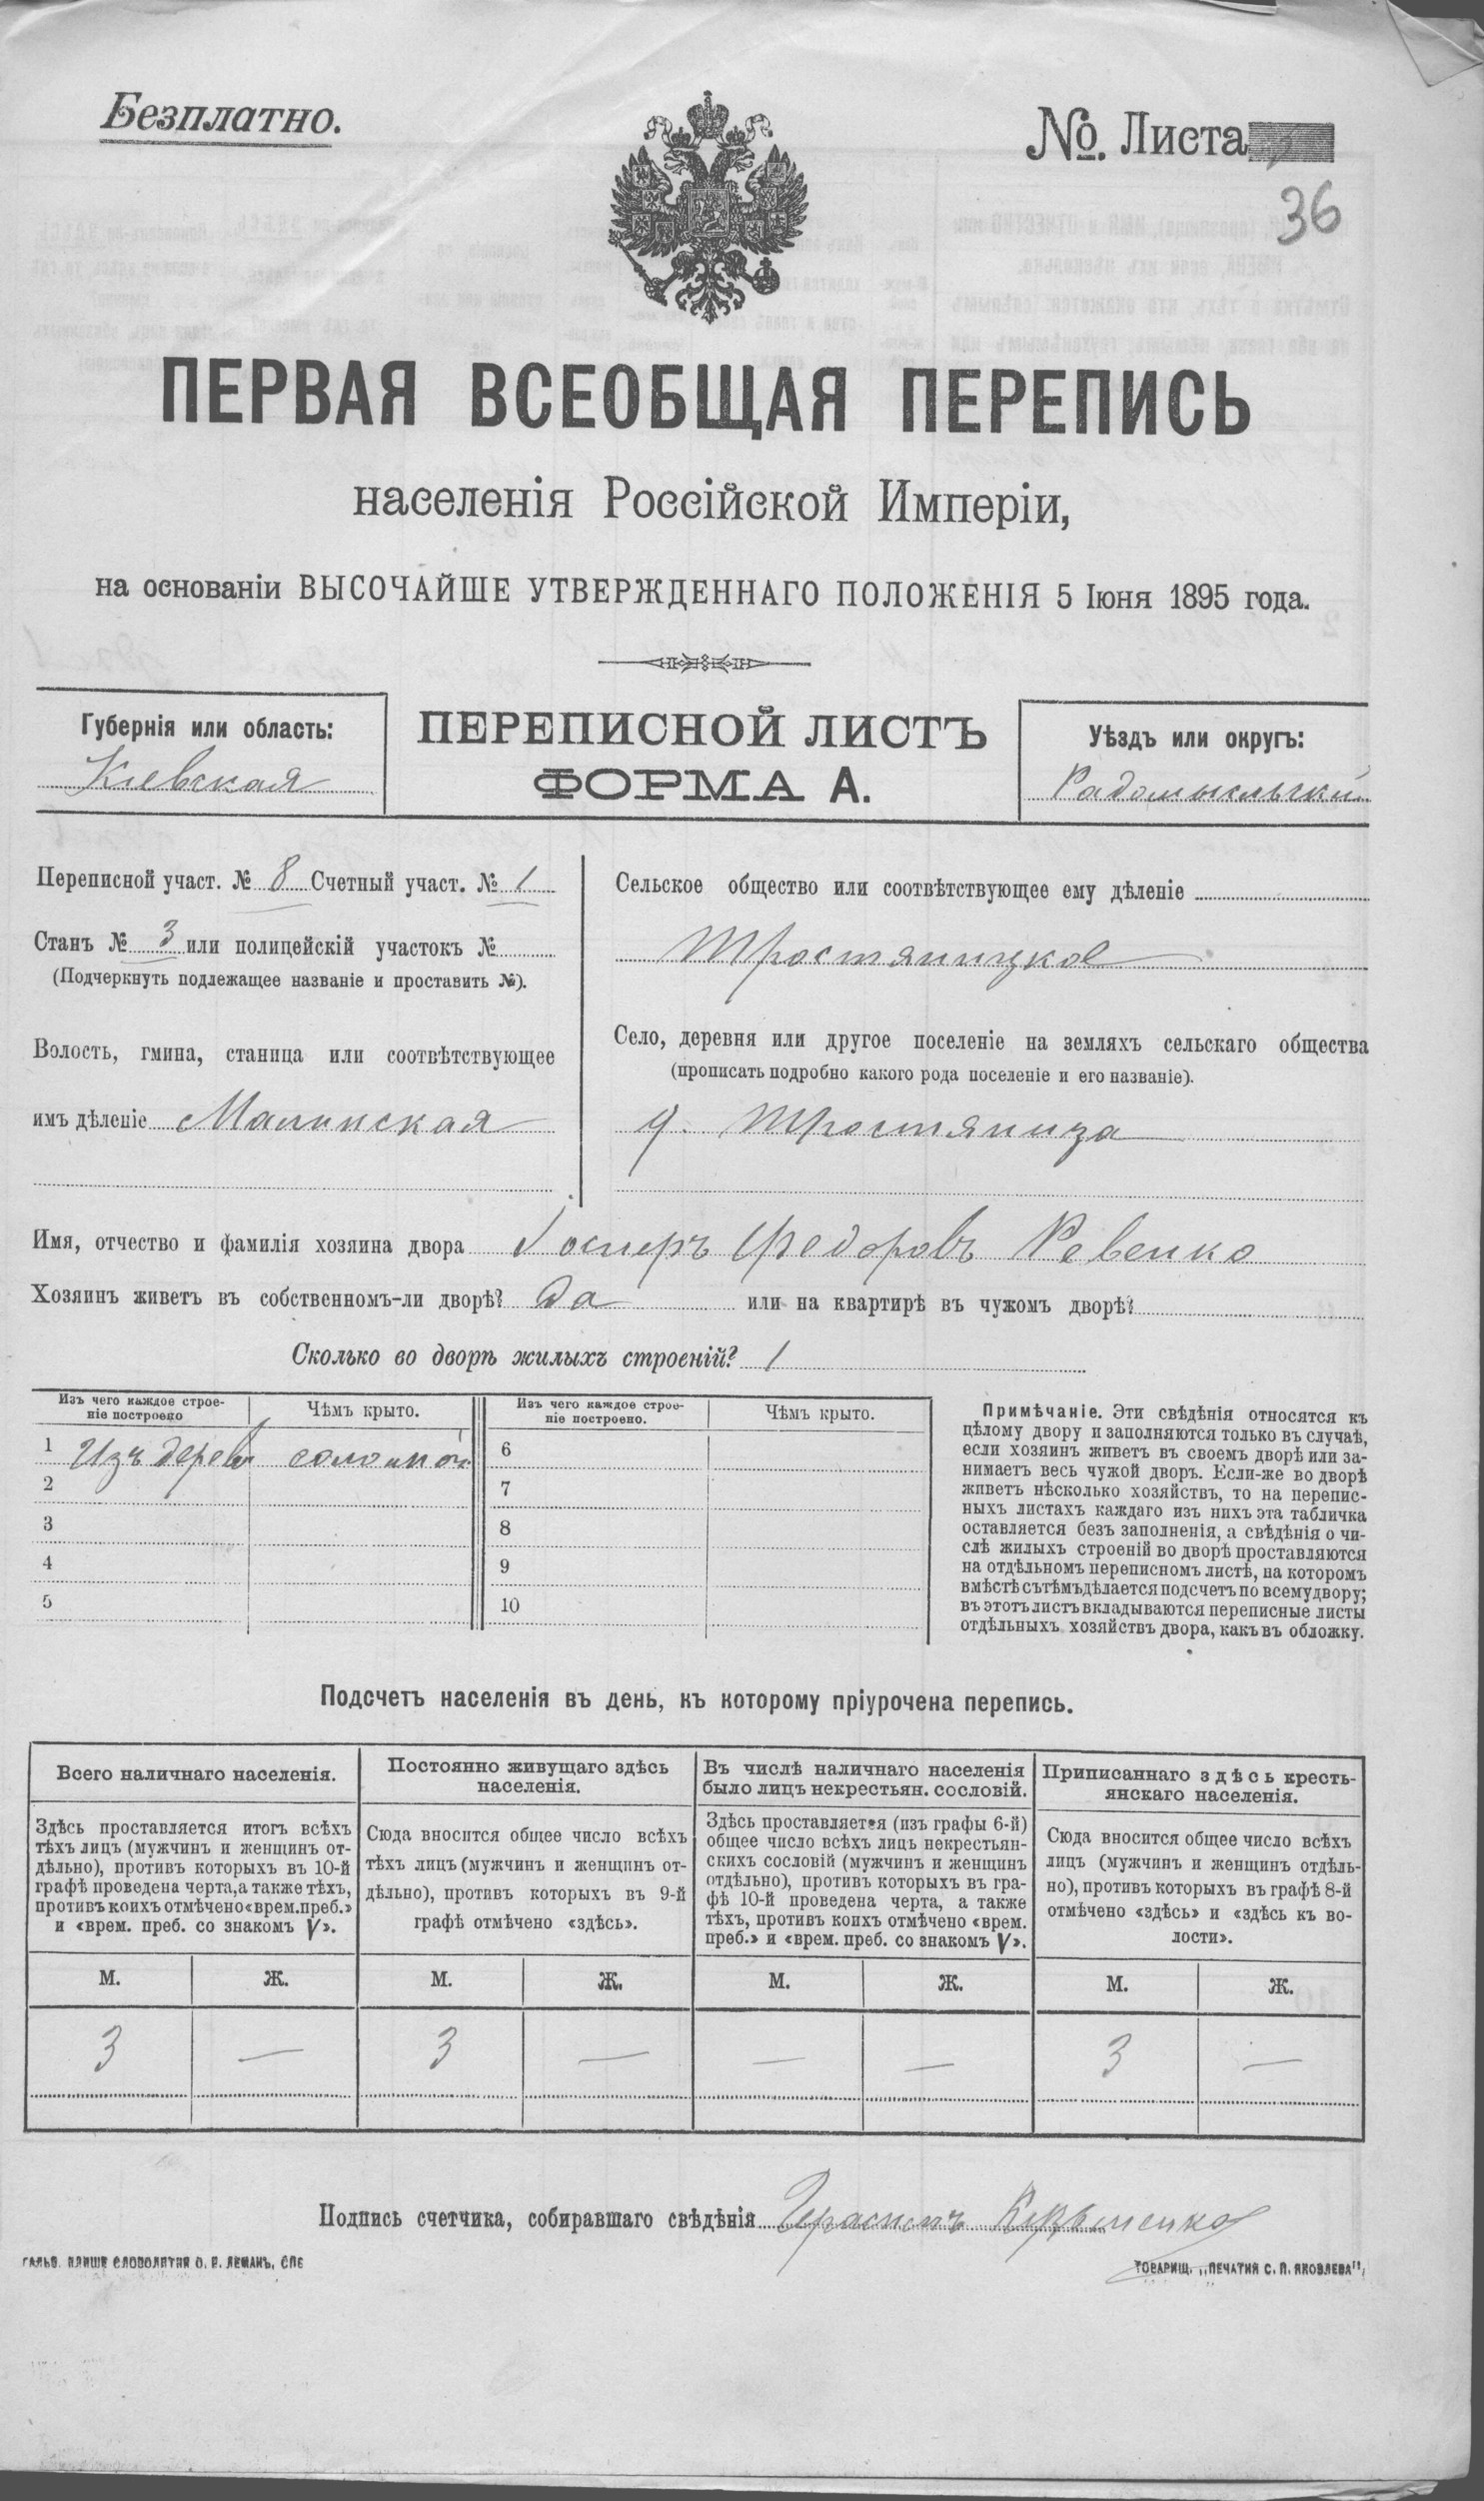 Безплатно.
№ Листа
36
ПЕРВАЯ ВСЕОБЩАЯ ПЕРЕПИСЬ
населенія Россійской Имперіи,
на основаніи ВЫСОЧАЙШЕ УТВЕРЖДЕННАГО ПОЛОЖЕНІЯ 5 Іюня 1895 года.
Губернія или область:
Кіевская
ПЕРЕПИСНОЙ ЛИСТЪ
ФОРМА А.
Уѣздъ или округъ:
Радомысльскій
Переписной участ. № 8 Счетный участ. № 1
Станъ № 3 или полицейскій участокъ №
(Подчеркнуть подлежащее названіе и проставить №).
Волость, гмина, станица или соотвѣтствующее
имъ дѣленіе Малинская
Сельское общество или соотвѣтствующее ему дѣленіе
Тростяницкое
Село, деревня или другое поселеніе на земляхъ сельскаго общества
(прописать подробно какого рода поселеніе и его названіе).
д. Тростяница
Имя, отчество и фамилія хозяина двора Федоровъ Ревенко
Хозяинъ живетъ въ собственномъ-ли дворѣ? Да или на квартирѣ въ чужомъ дворѣ?
Сколько во дворѣ жилыхъ строеній? 1
Изъ чего каждое строе-
ніе построено
Чѣмъ крыто.
Изъ чего каждое строе-
ніе построено.
Чѣмъ крыто.
1 Изъ дерева соломой
2
3
4
5
6
7
8
9
10
Примѣчаніе. Эти свѣдѣнія относятся къ
цѣлому двору и заполняются только въ случаѣ,
если хозяинъ живетъ въ своемъ дворѣ или за-
нимаетъ весь чужой дворъ. Если-же во дворѣ
живетъ нѣсколько хозяйствъ, то на перепис-
ныхъ листахъ каждаго изъ нихъ эта табличка
оставляется безъ заполненія, а свѣдѣнія о чи-
слѣ жилыхъ строеній во дворѣ проставляются
на отдѣльномъ переписномъ листѣ, на которомъ
вмѣстѣ съ тѣмъ дѣлается подсчетъ по всему двору;
въ этотъ листъ вкладываются переписные листы
отдѣльныхъ хозяйствъ двора, какъ въ обложку.
Подсчетъ населенія въ день, къ которому пріурочена перепись.
Всего наличнаго населенія.
Здѣсь проставляется итогъ всѣхъ
тѣхъ лицъ (мужчинъ и женщинъ от-
дѣльно), противъ которыхъ въ 10-й
графѣ проведена черта, а также тѣхъ,
противъ коихъ отмѣчено «врем. преб.»
и «врем. преб. со знакомъ V».
Постоянно живущаго здѣсь
населенія.
Сюда вносится общее число всѣхъ
тѣхъ лицъ (мужчинъ и женщинъ от-
дѣльно), противъ которыхъ въ 9-й
графѣ отмѣчено «здѣсь».
Въ числѣ наличнаго населенія
было лицъ некрестьян. сословій.
Здѣсь проставляется (изъ графы 6-й)
общее число всѣхъ лицъ некрестьян-
скихъ сословій (мужчинъ и женщинъ
отдѣльно), противъ которыхъ въ гра-
фѣ 10-й проведена черта, а также
тѣхъ, противъ коихъ отмѣчено «врем.
преб.» и «врем. преб. со знакомъ V».
Приписаннаго здѣсь кресть-
янскаго населенія.
Сюда вносится общее число всѣхъ
лицъ (мужчинъ и женщинъ отдѣль-
но), противъ которыхъ въ графѣ 8-й
отмѣчено «здѣсь» и «здѣсь къ во-
лости».
М. Ж. М. Ж. М. Ж. М. Ж.
3 — 3 — — — 3 —
Подпись счетчика, собиравшаго свѣдѣнія Герасимъ
ГАЛЬВ. КЛИШЕ СЛОВОЛИТНИ О. И. ЛЕМАНЪ, СПБ
ТОВАРИЩ. „ПЕЧАТНЯ С. П. ЯКОВЛЕВА",